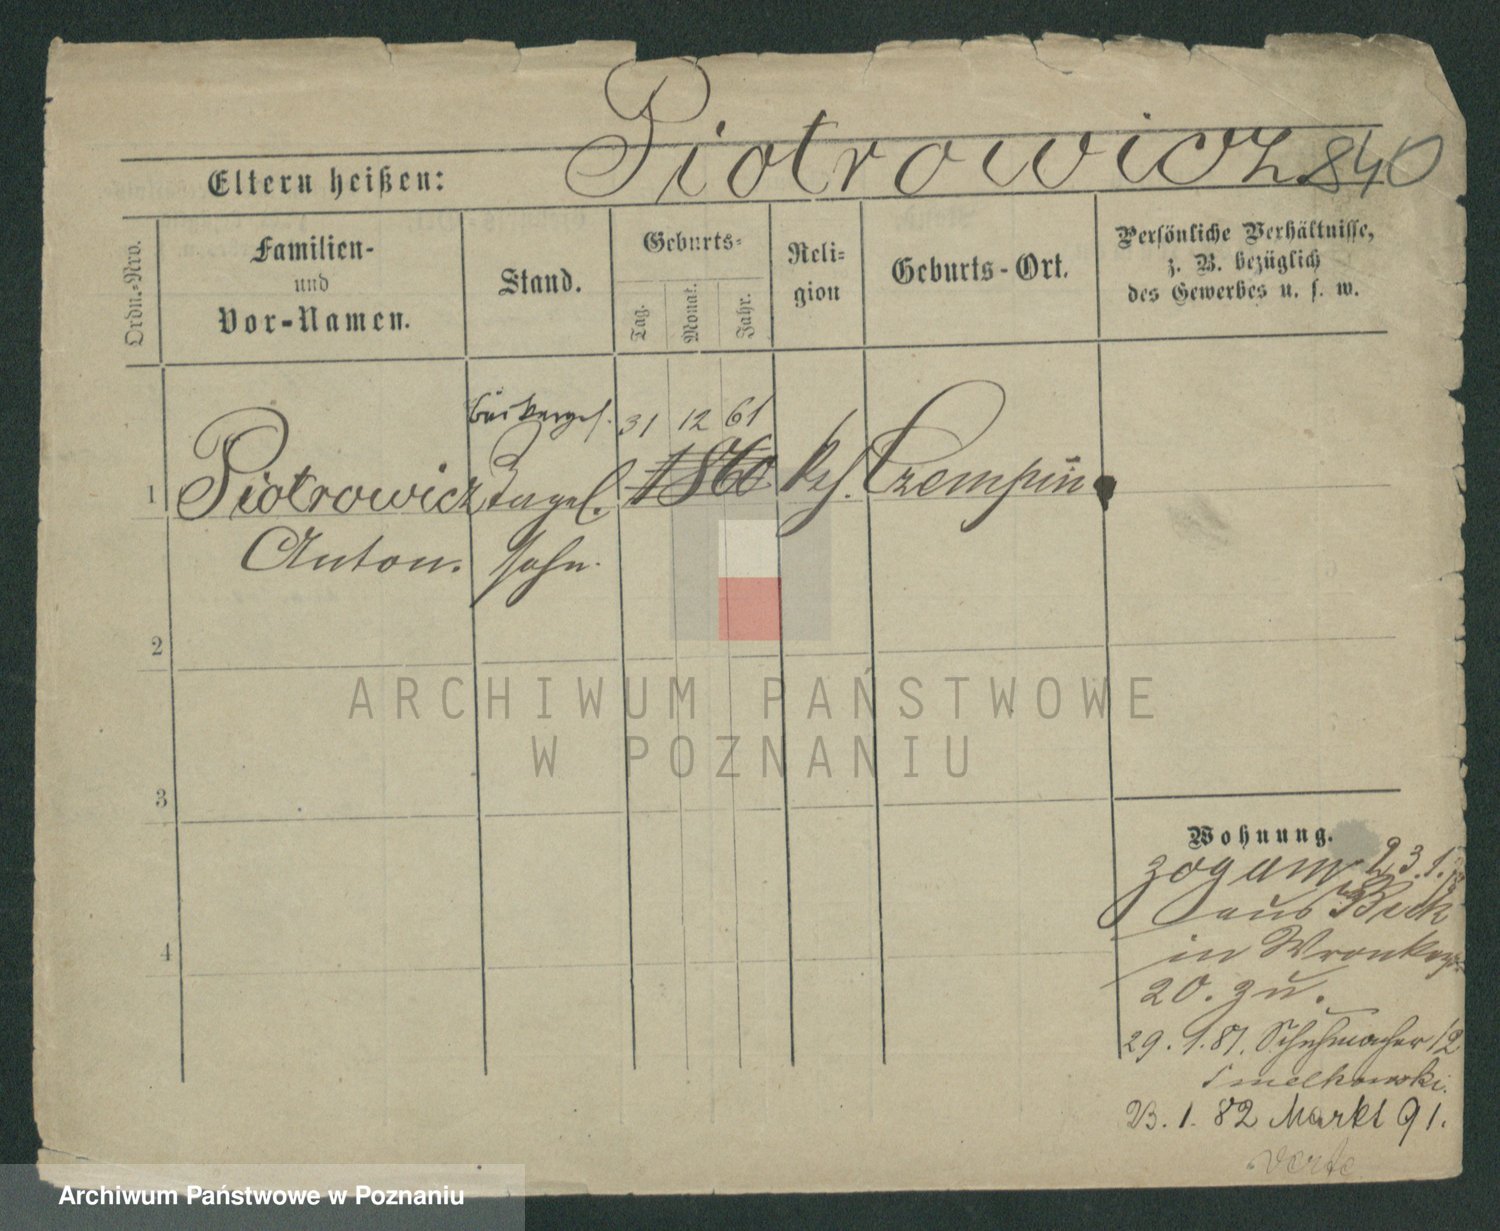 Piotrowicz 840
Eltern heißen:
Ordn.-Nro.
Familien-
und
Vor-Namen.
Stand.
Geburts-
Tag.
Monat.
Jahr.
Reli-
gion
Geburts-Ort.
Persönliche Verhältnisse,
z. B. bezüglich
des Gewerbes u. s. w.
31 12 61
1 Piotrowicz 1860 Czempiń
Anton. Sohn.
2
ARCHIWUM PAŃSTWOWE
W POZNANIU
3
Wohnung.
zog am 23.1.
aus
in Wronker
20. zu.
29.1.81. Schuhmacher 12
23.1.82 Markt 91.
verte
4
Archiwum Państwowe w Poznaniu